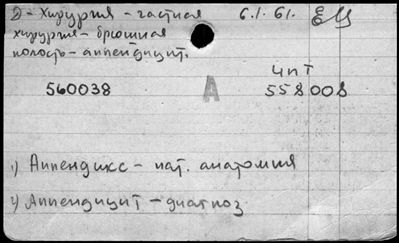 2 - Хирургия - частная 6.1.61.
хирургия - брюшная
полость - аппендицит.
560038 А 558008
1) Аппендикс - пат. анатомия
2) Аппендицит - диагноз